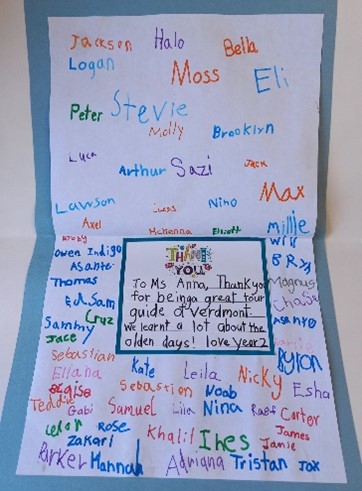 Jackson Halo Bella
Logan Moss Eli
Peter Stevie
Molly Brooklyn
Luca Arthur Sazi Jack
Max
Lawson Lucas Nino
Axel McKenna Elliott Millie
THANK
YOU
To Ms Anna, Thank you
for being a great tour
guide of Verdmont.
we learnt a lot about the
olden days! love year 2
Owen Indigo
Asante
Thomas Magnus
Ed Sam Chase
Cruz
Sammy
Jace
Sebastian Byron
Ellana Kate Leila Nicky
Sebastian Noah Esha
Teddie Gabi Samuel Lila Nina Raef Carter
Rose James
Zakari Khalil Ines Jamie
Parker Hannah Adriana Tristan Jax